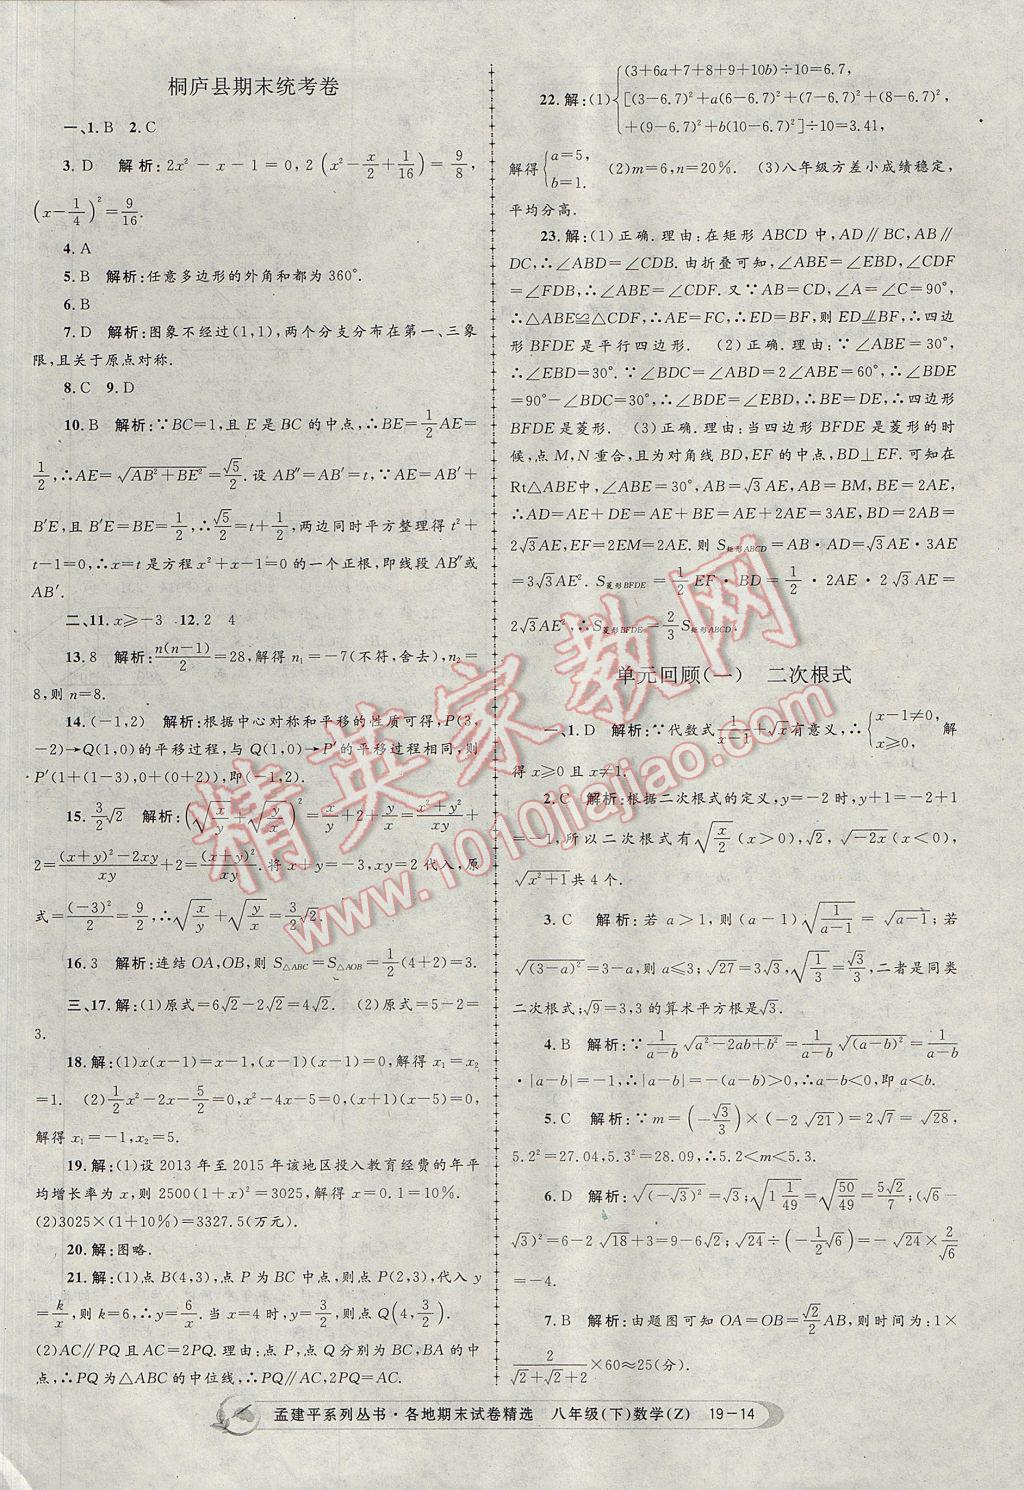 桐庐县期末统考卷
一、1. B　2. C
3. D　解析:2x²－x－1＝0,2(x²－x/2＋1/16)＝9/8,
(x－1/4)²＝9/16.
4. A
5. B　解析:任意多边形的外角和都为360°.
6. B
7. D　解析:图象不经过(1,1),两个分支分布在第一、三象
限,且关于原点对称.
8. C　9. D
10. B　解析:∵BC＝1,且E是BC的中点,∴BE＝1/2AE＝
1/2,∴AE＝√(AB²＋BE²)＝√5/2.设AB″＝AB′＝t,∵AE＝AB′＋
B′E,且B′E＝BE＝1/2,∴√5/2＝t＋1/2,两边同时平方整理得t²＋
t－1＝0,∴x＝t是方程x²＋x－1＝0的一个正根,即线段AB″或
AB′.
二、11. x≥－3　12. 2　4
13. 8　解析:n(n－1)/2＝28,解得n₁＝－7(不符,舍去),n₂＝
8,则n＝8.
14. (－1,2)　解析:根据中心对称和平移的性质可得,P(3,
－2)→Q(1,0)的平移过程,与Q(1,0)→P′的平移过程相同,则
P′(1＋(1－3),0＋(0＋2)),即(－1,2).
15. 3/2√2　解析:(√(x/y)＋√(y/x))²＝x/y＋2＋y/x＝(x²＋y²)/xy＋
2＝((x＋y)²－2xy)/xy＋2＝(x＋y)²/xy.将x＋y＝－3,xy＝2代入,原
式＝(－3)²/2＝9/2,∴√(x/y)＋√(y/x)＝3/2√2.
16. 3　解析:连结OA,OB,则S△ABC＝S△AOB＝1/2(4＋2)＝3.
三、17. 解:(1)原式＝6√2－2√2＝4√2.　(2)原式＝5－2＝
3.
18. 解:(1)x(x－1)＝x－1,(x－1)(x－1)＝0,解得x₁＝x₂
＝1.　(2)1/2x²－2x－5/2＝0,x²－4x－5＝0,(x＋1)(x－5)＝0,
解得x₁＝－1,x₂＝5.
19. 解:(1)设2013年至2015年该地区投入教育经费的年平
均增长率为x,则2500(1＋x)²＝3025,解得x＝0.1＝10%.
(2)3025×(1＋10%)＝3327.5(万元).
20. 解:图略.
21. 解:(1)点B(4,3),点P为BC中点,则点P(2,3),代入y
＝k/x,则k＝6,∴y＝6/x.当x＝4时,y＝3/2,则点Q(4,3/2).
(2)AC∥PQ且AC＝2PQ.理由:点P,点Q分别为BC,BA的中
点,∴PQ为△ABC的中位线,∴PQ∥AC,2PQ＝AC.
22. 解:(1){(3＋6a＋7＋8＋9＋10b)÷10＝6.7,
[(3－6.7)²＋a(6－6.7)²＋(7－6.7)²＋(8－6.7)²
＋(9－6.7)²＋b(10－6.7)²]÷10＝3.41,
解得{a＝5, b＝1.　(2)m＝6,n＝20%.　(3)八年级方差小成绩稳定,
平均分高.
23. 解:(1)正确.理由:在矩形ABCD中,AD∥BC,AB∥
DC,∴∠ABD＝∠CDB.由折叠可知,∠ABE＝∠EBD,∠CDF
＝∠FDB,∴∠ABE＝∠CDF.又∵AB＝CD,∠A＝∠C＝90°,
∴△ABE≌△CDF,∴AE＝FC,∴ED＝BF,则ED⫽BF,∴四边
形BFDE是平行四边形.　(2)正确.理由:∵∠ABE＝30°,
∴∠EBD＝30°.∵∠BDC＝∠ABD＝2∠ABE＝60°,∴∠BDE
＝90°－∠BDC＝30°,∴∠BDE＝∠EBD,∴BE＝DE,∴四边形
BFDE是菱形.　(3)正确.理由:当四边形BFDE是菱形的时
候,点M,N重合,且为对角线BD,EF的中点,BD⊥EF.可知在
Rt△ABE中,∠ABE＝30°,AB＝√3AE,AB＝BM,BE＝2AE,
∴AD＝AE＋DE＝AE＋BE＝AE＋2AE＝3AE,BD＝2AB＝
2√3AE,EF＝2EM＝2AE.则S矩形ABCD＝AB·AD＝√3AE·3AE
＝3√3AE².S菱形BFDE＝1/2EF·BD＝1/2·2AE·2AE·
2√3AE²,∴S菱形BFDE＝2/3S矩形ABCD.
单元回顾(一)　二次根式
一、1. D　解析:∵代数式1/(x－1)＋√x有意义,∴{x－1≠0, x≥0,　解
得x≥0且x≠1.
2. C　解析:根据二次根式的定义,y＝－2时,y＋1＝－2＋1
＝－1,所以二次根式有√(x/2)(x＞0),√2,√(－2x)(x＜0),
√(x²＋1)共4个.
3. C　解析:若a＞1,则(a－1)√(1/(a－1))＝√(a－1);若
√((3－a)²)＝3－a,则a≤3;√27＝3√3,√(1/3)＝√3/3,二者是同类
二次根式;√9＝3,3的算术平方根是√3.
4. B　解析:∵1/(a－b)√(a²－2ab＋b²)＝1/(a－b)√((a－b)²)＝1/(a－b)
·|a－b|＝－1,∴|a－b|＝－(a－b),∴a－b＜0,即a＜b.
5. C　解析:∵m＝(－√3/3)×(－2√21)＝2√7＝√28,
5.2²＝27.04,5.3²＝28.09,∴5.2＜m＜5.3.
6. D　解析:√(－(－√3)²)＝√3;√(1 1/49)＝√(50/49)＝5√2/7;(√6－
√3)²＝6－2√18＋3＝9－6√2;－√24÷(－1/2√6)＝－√24×2/√6
＝－4.
7. B　解析:由题图可知OA＝OB＝√2/2AB,则时间为:1×
2/(√2＋√2＋2)×60≈25(分).
精英家教网
www.1010jiajiao.com
孟建平系列丛书·各地期末试卷精选　八年级(下)数学(Z)　19－14